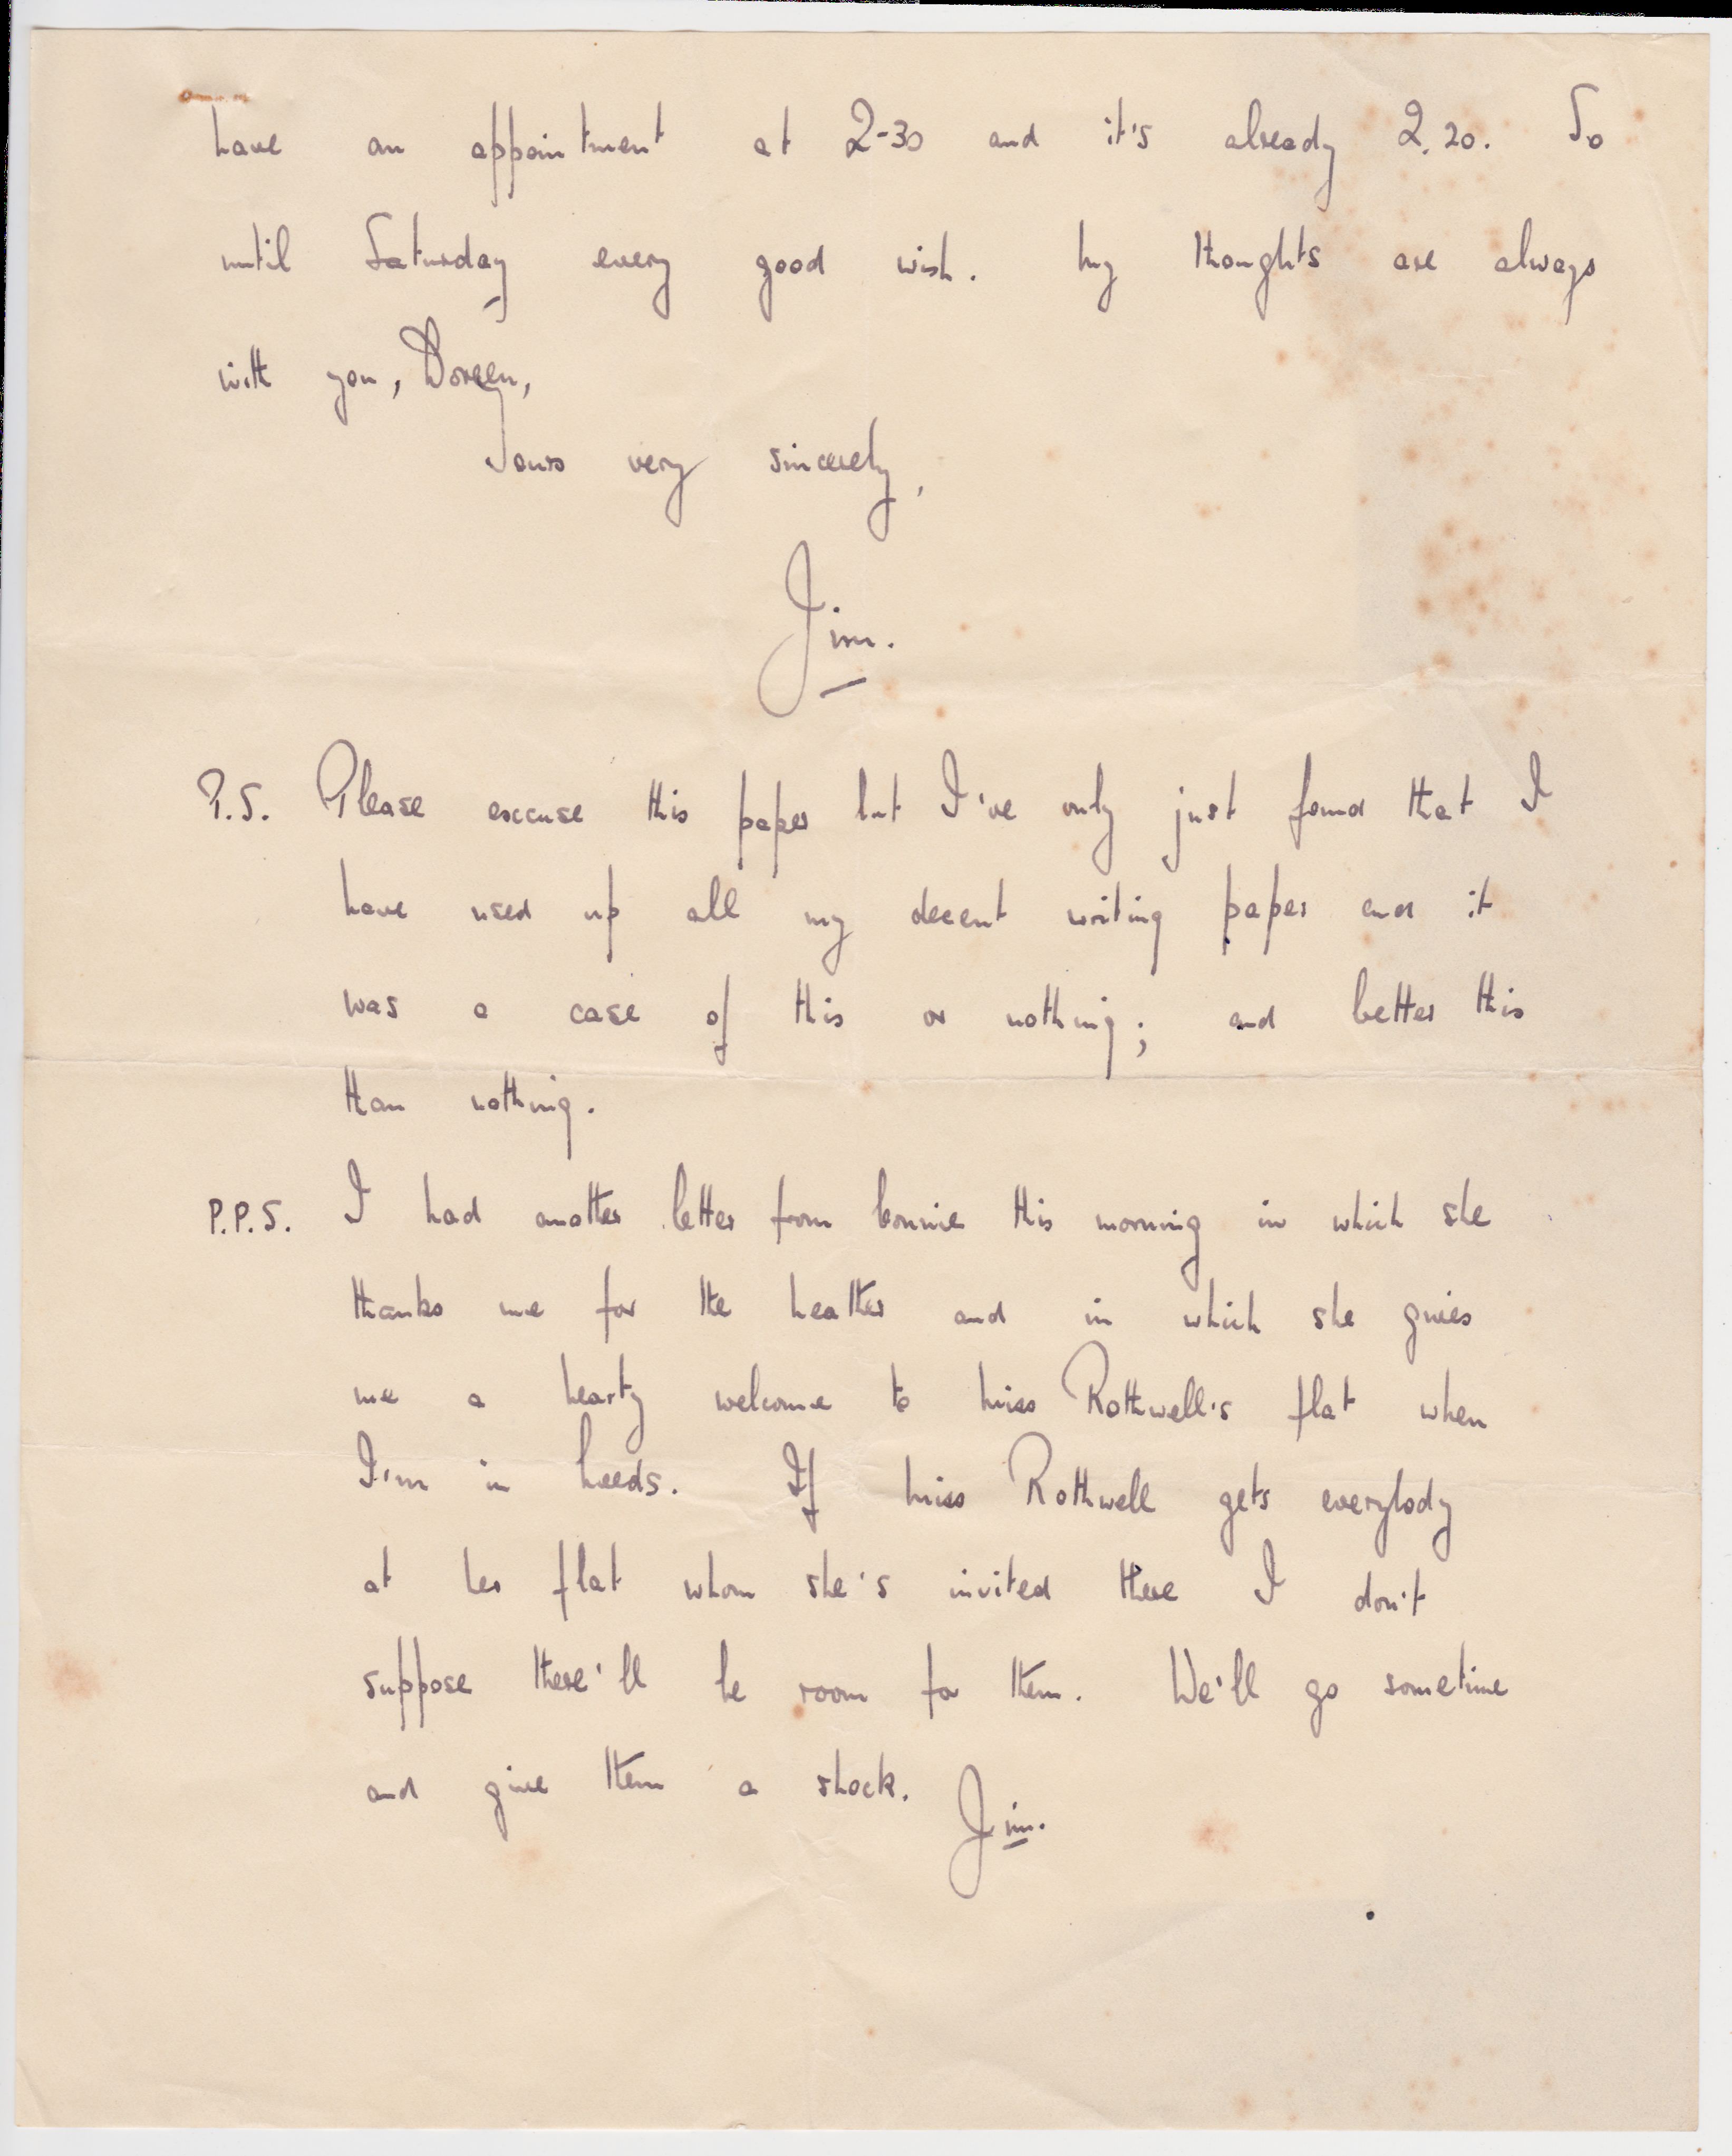 have an appointment at 2-30 and it's already 2.20. So
until Saturday every good wish. My thoughts are always
with you, Doreen,
Yours very sincerely,
Jim.
P.S. Please excuse this paper but I've only just found that I
have used up all my decent writing paper and it
was a case of this or nothing; and better this
than nothing.
P.P.S. I had another letter from Connie this morning in which she
thanks me for the heather and in which she gives
me a hearty welcome to Miss Rothwell's flat when
I'm in Leeds. If Miss Rothwell gets everybody
at her flat whom she's invited there I don't
suppose there'll be room for them. We'll go sometime
and give them a shock. Jim.